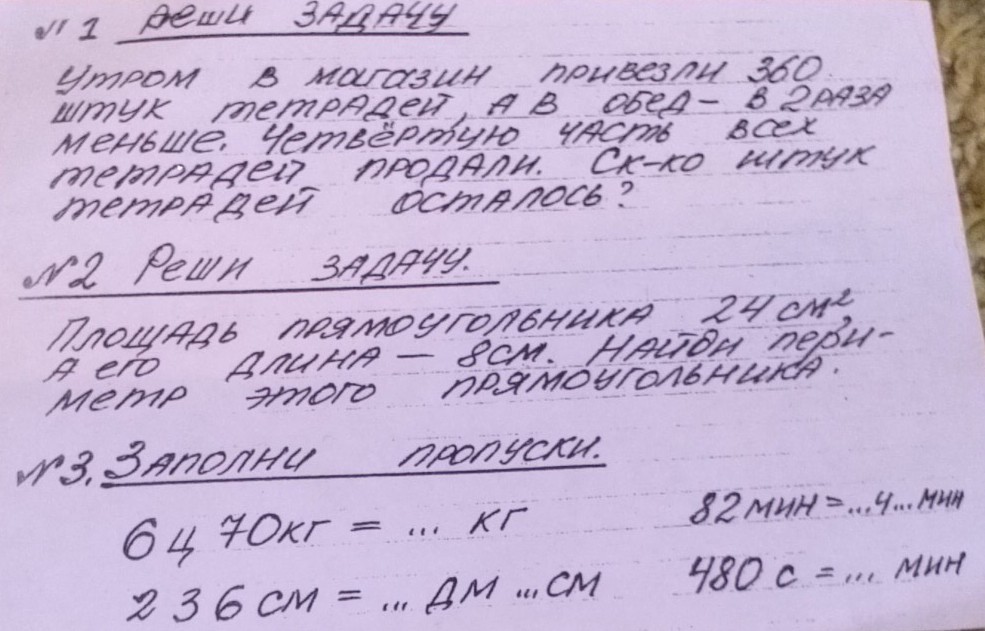 №1 Реши задачу
Утром в магазин привезли 360
штук тетрадей, а в обед – в 2 раза
меньше. Четвёртую часть всех
тетрадей продали. Ск-ко штук
тетрадей осталось?
№2 Реши задачу.
Площадь прямоугольника 24 см²,
а его длина — 8см. Найди пери-
метр этого прямоугольника.
№3. Заполни пропуски.
6 ц 70кг = ... кг 82мин = ...ч ... мин
236 см = ... дм ...см 480 с = ... мин